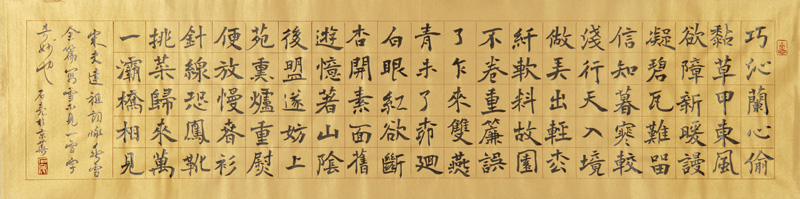 巧沁蘭心偷
黏草甲東風
欲障新暖謾
凝碧瓦難留
信知暮寒較
淺行天入境
做弄出輕松
纖軟料故園
不卷重簾誤
了乍來雙燕
青未了柳迴
白眼紅欲斷
杏開素面舊
遊憶著山陰
後盟遂妨上
苑熏爐重熨
便放慢春衫
針線恐鳳靴
挑菜歸來萬
一灞橋相見
宋史達祖詞詠春雪
全篇寫雪不見一雪字
奇妙也